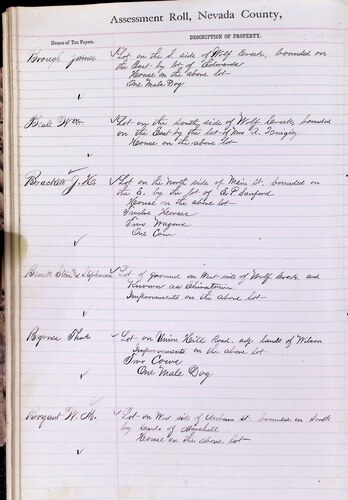 Assessment Roll, Nevada County,
Names of Tax Payers.
DESCRIPTION OF PROPERTY.
Brough James
Lot on the S side of Wolf Creek, bounded on
the East by lot of Edwards
House on the above lot
One Male Dog
Beall Wm
Lot on the South side of Wolf Creek, bounded
on the East by the lot of Mrs A.
House on the above lot
Brackett J. K.
Lot on the North side of Main St. bounded on
the E. by the lot of E P Sanford
House on the above lot
Twelve Horses
Two Wagons
One Cow
Lot of Ground on West side of Wolf Creek and
Known as Chinatown
Improvements on the above lot
Byrnes Thos
Lot on Union Hill Road, adj. lands of Wilson
Improvements on the above lot
Two Cows
One Male Dog
Bryant W. H.
Lot on West side of Auburn St. bounded on South
by lands of Marshall
House on the above lot